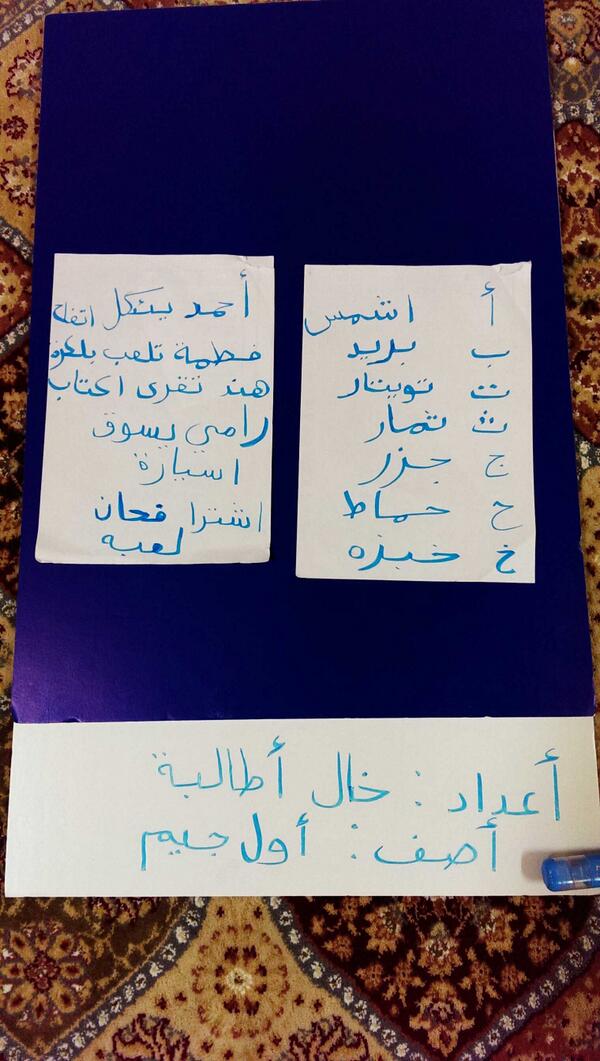 أ اشمس
ب بريد
ت تويتار
ث ثمار
ج جزر
ح حماط
خ خبزه
أحمد يئكل اتفاح
فطمة تلعب بلكرة
هند تقرى اكتاب
رامي يسوق
اسيارة
اشترا فحان
لعبه
أعداد : خال أطالبة
أصف : أول جيم